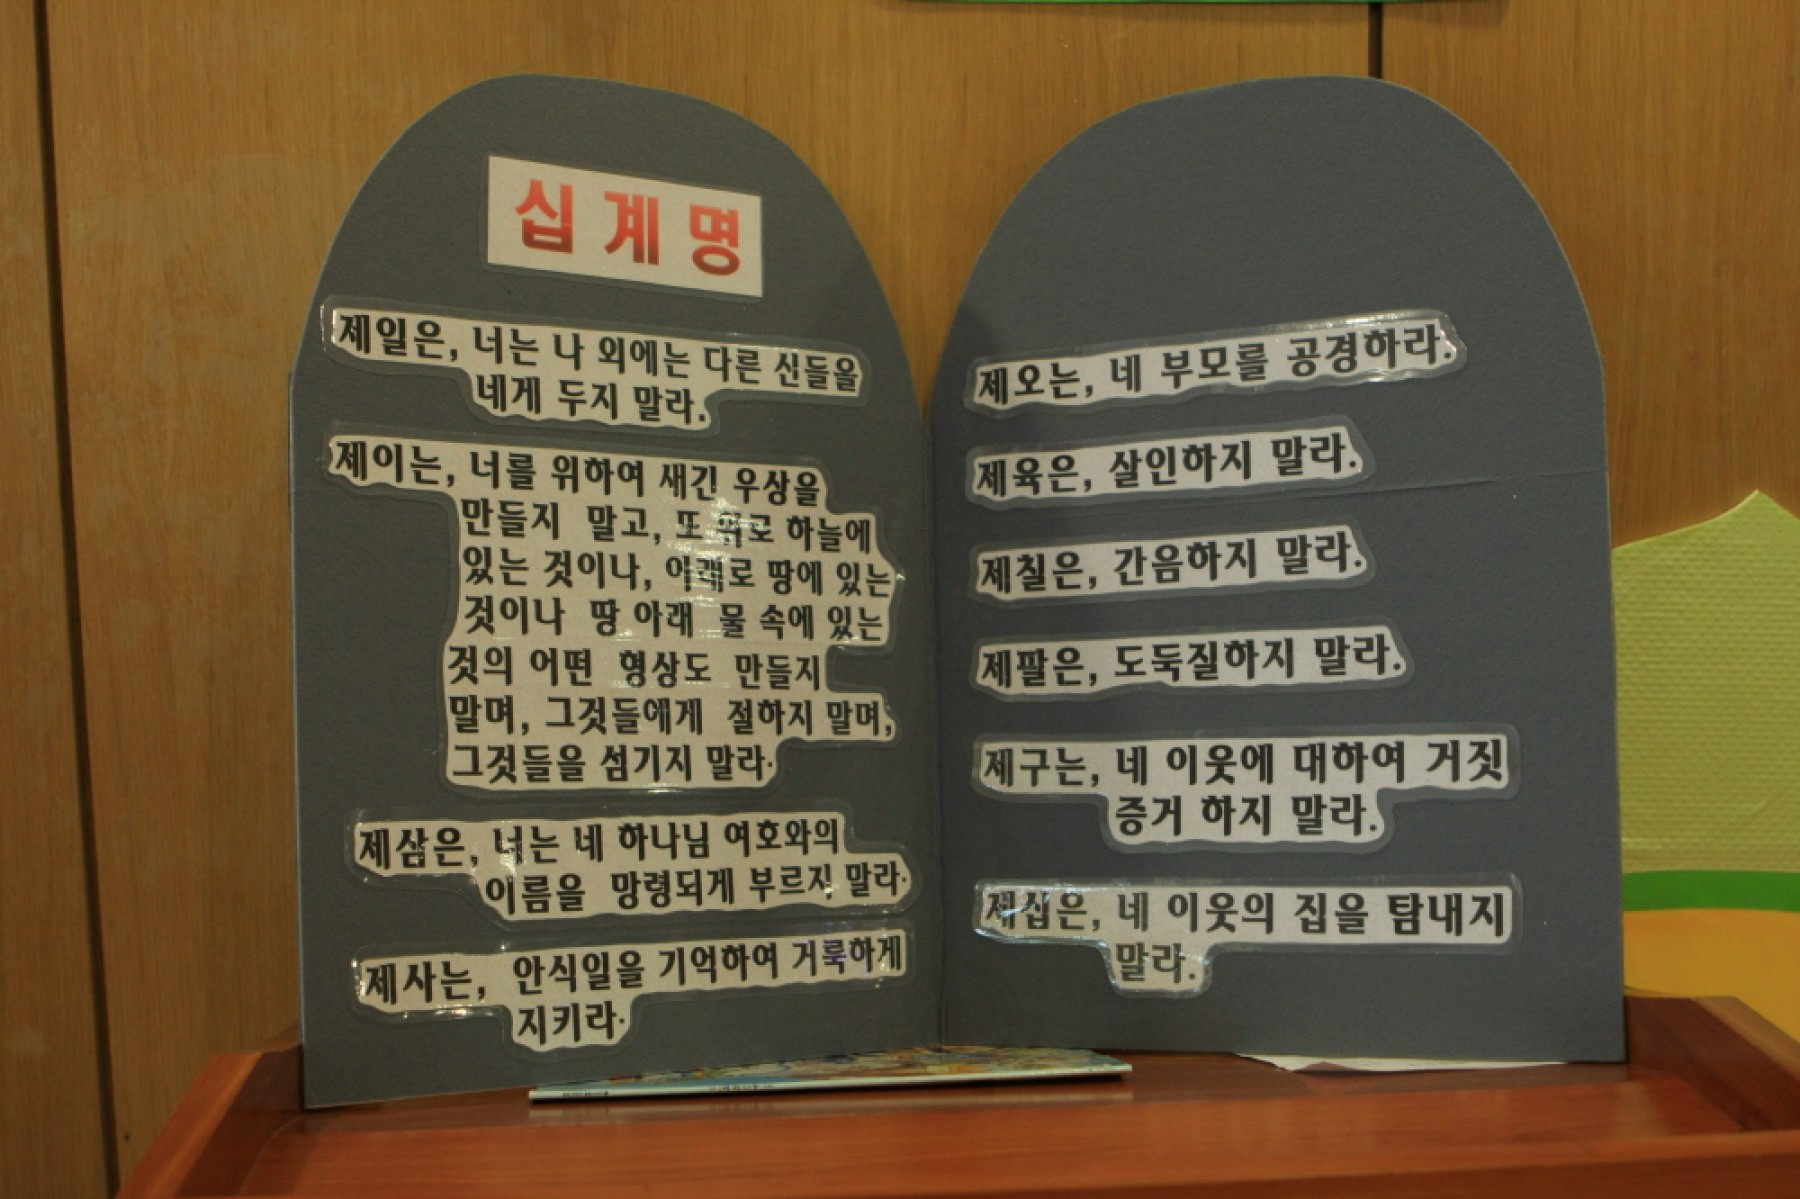 십계명
제일은, 너는 나 외에는 다른 신들을
네게 두지 말라.
제이는, 너를 위하여 새긴 우상을
만들지 말고, 또 위로 하늘에
있는 것이나, 아래로 땅에 있는
것이나 땅 아래 물 속에 있는
것의 어떤 형상도 만들지
말며, 그것들에게 절하지 말며,
그것들을 섬기지 말라.
제삼은, 너는 네 하나님 여호와의
이름을 망령되게 부르지 말라.
제사는, 안식일을 기억하여 거룩하게
지키라.
제오는, 네 부모를 공경하라.
제육은, 살인하지 말라.
제칠은, 간음하지 말라.
제팔은, 도둑질하지 말라.
제구는, 네 이웃에 대하여 거짓
증거 하지 말라.
제십은, 네 이웃의 집을 탐내지
말라.